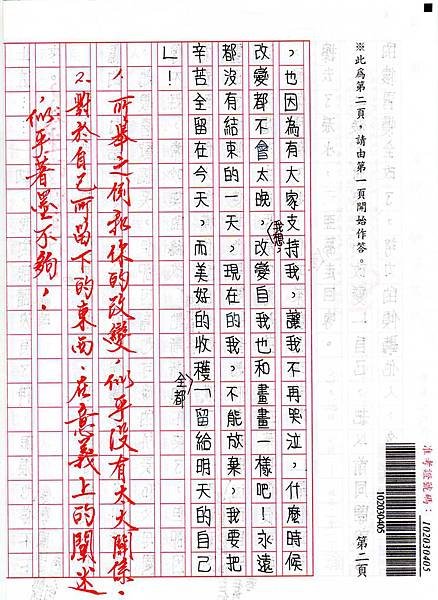 ※此為第二頁，請由第一頁開始作答。
第二頁
准考證號碼：102030405
102030405
，也因為有大家支持我，讓我不再哭泣，什麼時候
改變都不會太晚，我想，改變自我也和畫畫一樣吧！永遠
都沒有結束的一天，現在的我，不能放棄，我要把
辛苦全留在今天，而美好的收穫全都「留給明天的自己
」！
1. 所舉之例和你的改變，似乎沒有太大關係。
2. 對於自己所留下的東西，在意義上的闡述
似乎著墨不夠！